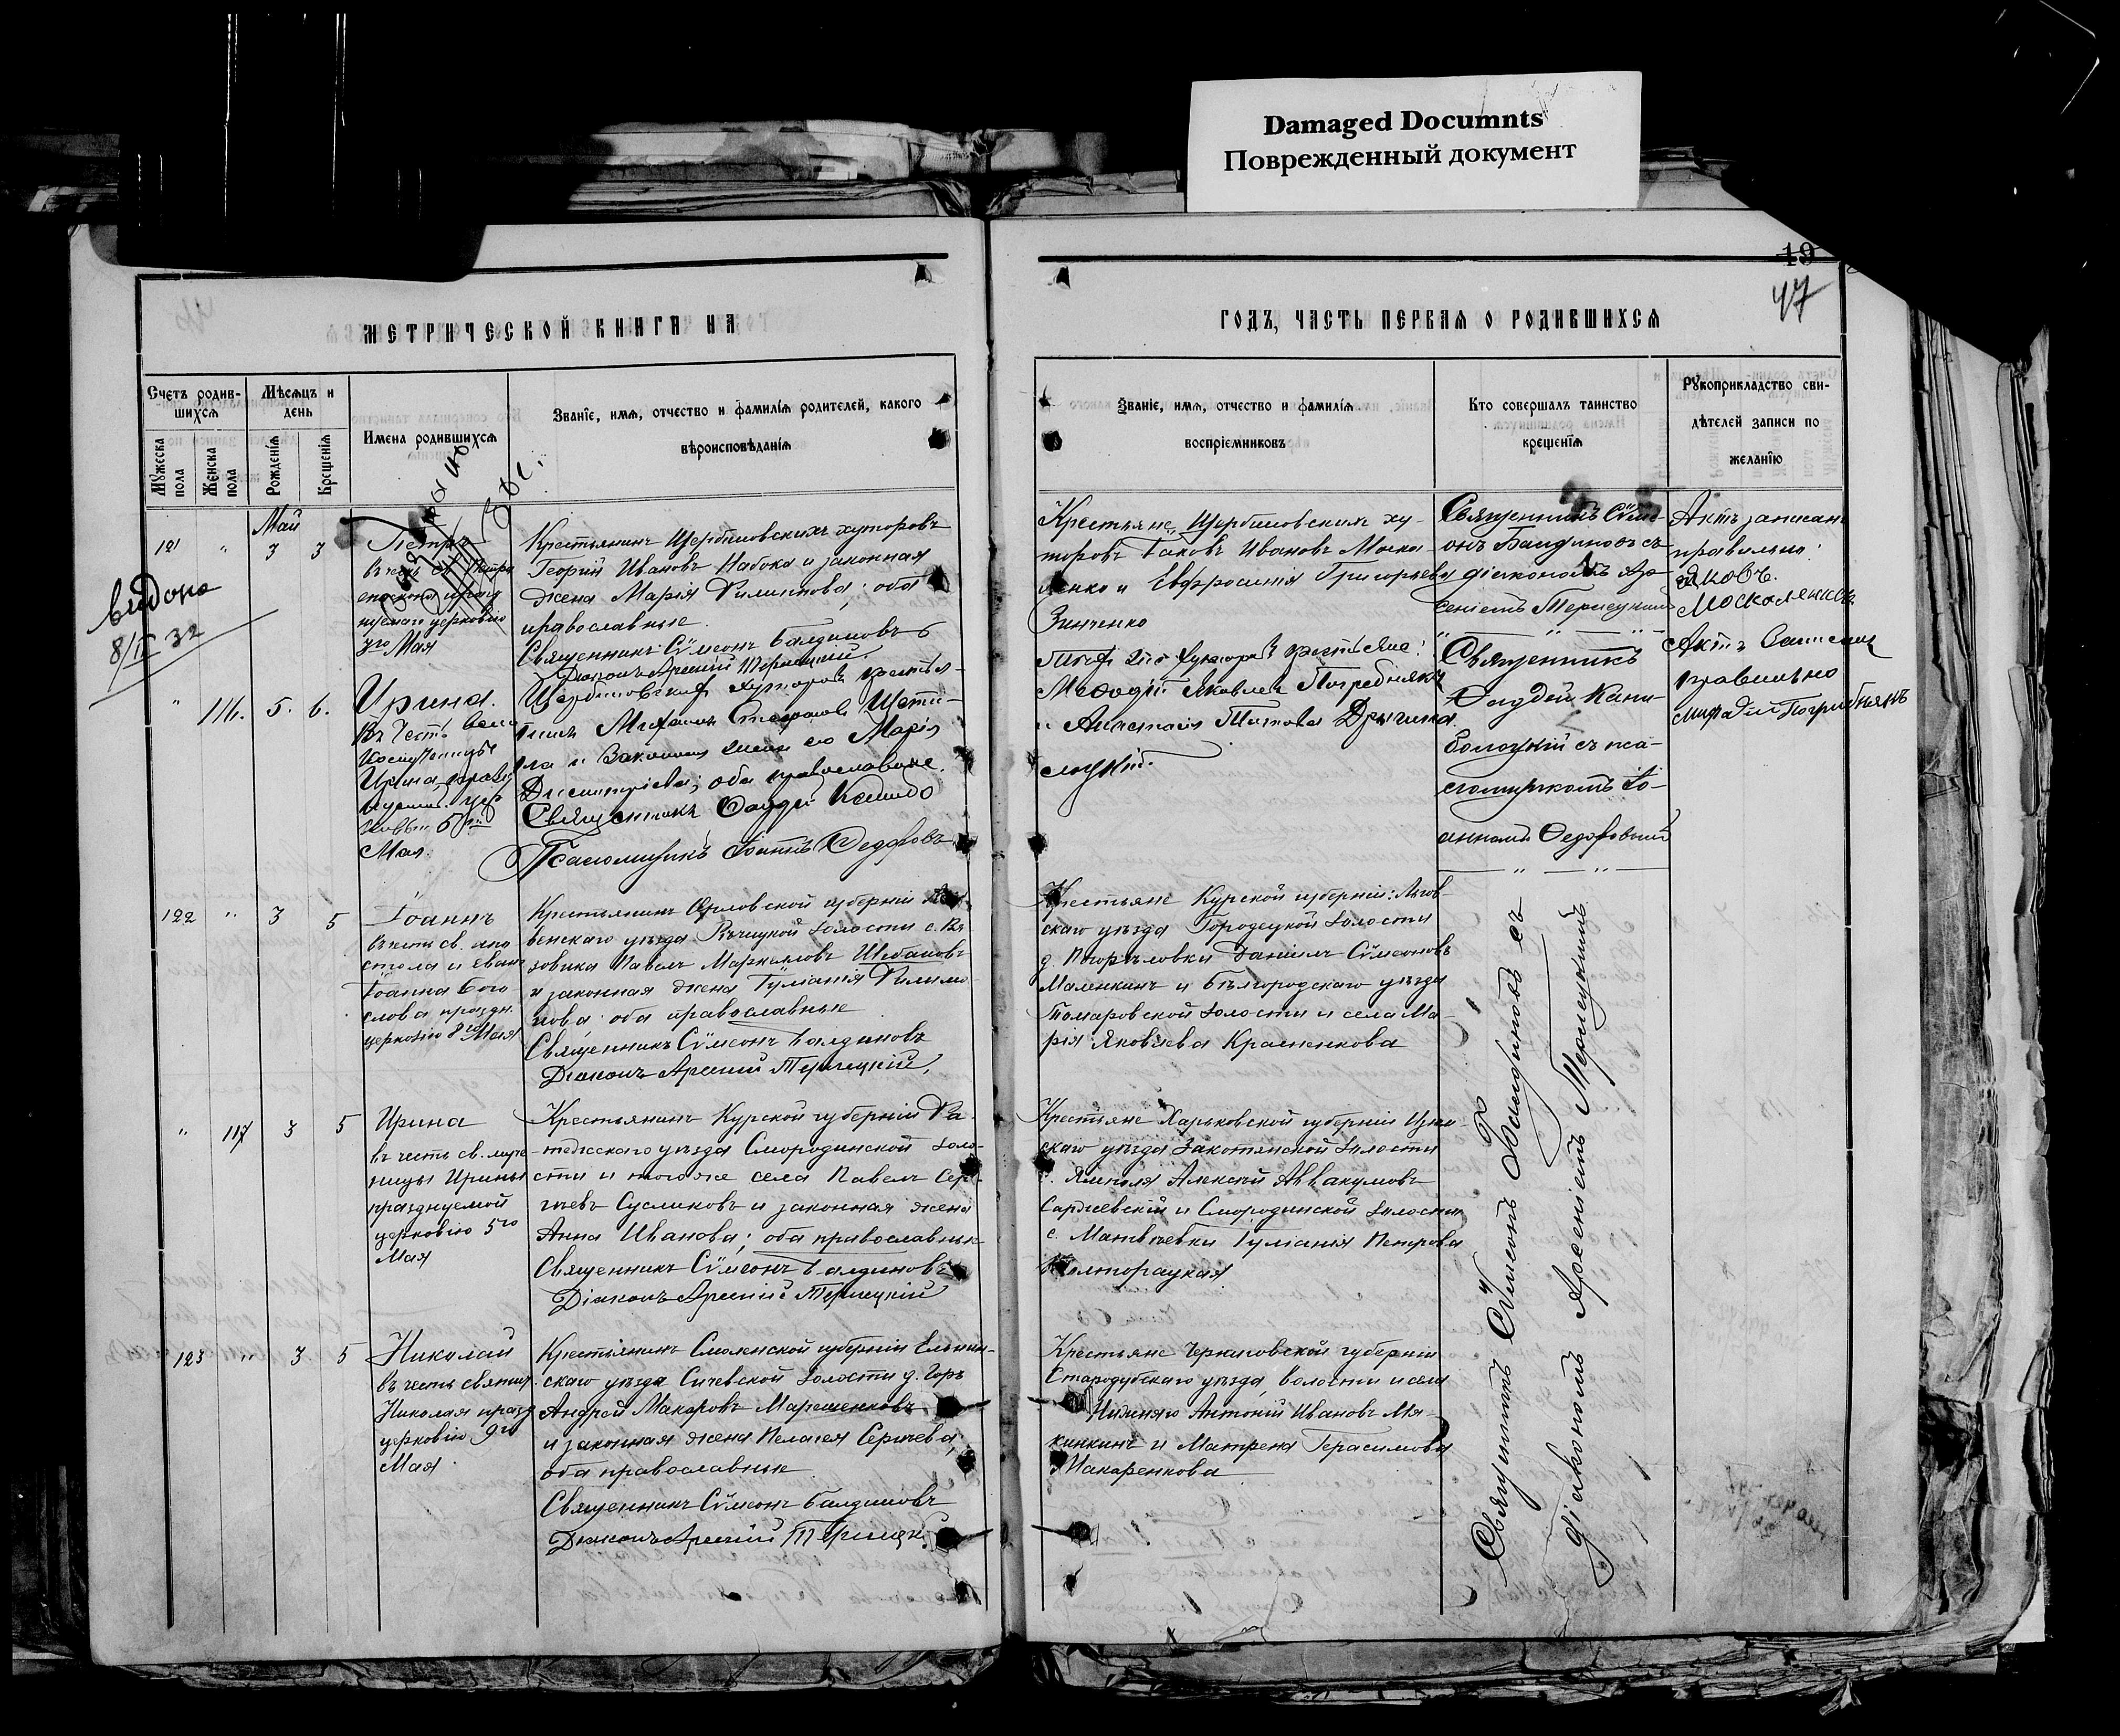 Damaged Documnts
Поврежденный документ
19
47
МЕТРИЧЕСКОЙ КНИГИ НА
ГОДЪ, ЧАСТЬ ПЕРВАЯ О РОДИВШИХСЯ
Счетъ родив-
шихся
Мѣсяцъ и
день
Мужеска пола
Женска пола
Рожденія
Крещенія
Имена родившихся
Званіе, имя, отчество и фамилія родителей, какого
вѣроисповѣданія
Званіе, имя, отчество и фамилія
воспріемниковъ
Кто совершалъ таинство
крещенія
Рукоприкладство сви-
дѣтелей записи по
желанію
Май
121 " 3 3
8/II 32
Петръ
церковію
3го Мая
Крестьянинъ Щербиновскихъ хуторовъ
Георгій Ивановъ Набока и законная
жена Марія Филиппова; оба
православные.
Священникъ Сѵмеонъ Балдиновъ
Діаконъ Арсеній Терлецкій
Крестьяне Щербиновскихъ ху-
торовъ Іаковъ Ивановъ Моска-
ленко и Евфросинія Григорьева
Зинченко
Священникъ Сѵме-
онъ Балдиновъ съ
діакономъ Ар-
сеніемъ Терлецкимъ
Актъ записанъ
правильно:
Яковъ
Москаленко
" 116. 5. 6.
Ирина.
Въ честь
Мая.
Щербиновскихъ хуторовъ крестья-
нинъ Михаилъ Щети-
на и законная жена его Марія
Димитріева; оба православные.
Священникъ
Псаломщикъ Федоровъ
хуторовъ крестьяне:
Мефодій Яковлевъ Погребнякъ
и Анастасія Титова
Священникъ
съ пса-
ломщикомъ Іо-
анномъ
Актъ записанъ
правильно
Погребнякъ
122 " 3 5
Іоаннъ
въ честь св. апо
стола и Еван
Іоанна Бого
слова праздн.
церковію 8го Мая
Крестьянинъ Орловской губерніи
венскаго уѣзда Рѣчицкой волости с. Вя
зовика Павелъ Маркелловъ Шебановъ
и законная жена Гуліанія Филимо
нова оба православные
Священникъ Сѵмеонъ Балдиновъ
Діаконъ Арсеній Терлецкій
Крестьяне Курской губерніи: Льгов-
скаго уѣзда Городецкой волости
д. Погорѣловки Даніилъ Сѵмеоновъ
Маленкинъ и Бѣлгородскаго уѣзда
Томаровской волости и села Ма-
рія Яковлева
Священникъ Сѵмеонъ Балдиновъ съ
діакономъ Арсеніемъ Терлецкимъ
" 117 3 5
Ирина
въ честь св. муче
ницы Ирины
празднуемой
церковію 5го
Мая
Крестьянинъ Курской губерніи Фа-
тежскаго уѣзда Смородинской воло-
сти и того же села Павелъ Сер-
гѣевъ Сусликовъ и законная жена
Анна Иванова; оба православные
Священникъ Сѵмеонъ Балдиновъ
Діаконъ Арсеній Терлецкій
Крестьяне Харьковской губерніи Изюм-
скаго уѣзда Закотянской волости
с. Ямполя Алексій Аввакумовъ
и Смородинской волости
с. Матвѣевки Гуліанія Петрова
123 " 3 5
Николай
въ честь святит.
Николая празд
церковію 9го
Мая
Крестьянинъ Смоленской губерніи Ельнин-
скаго уѣзда Сичевской волости д. Горъ
Андрей Макаровъ Марешенковъ
и законная жена Пелагея Сергѣева,
оба православные
Священникъ Сѵмеонъ Балдиновъ
Діаконъ Арсеній Терлецкій
Крестьяне Черниговской губерніи
Стародубскаго уѣзда, волости и села
Антоній Ивановъ Мя-
кинкинъ и Матрена Герасимова
Макаренкова